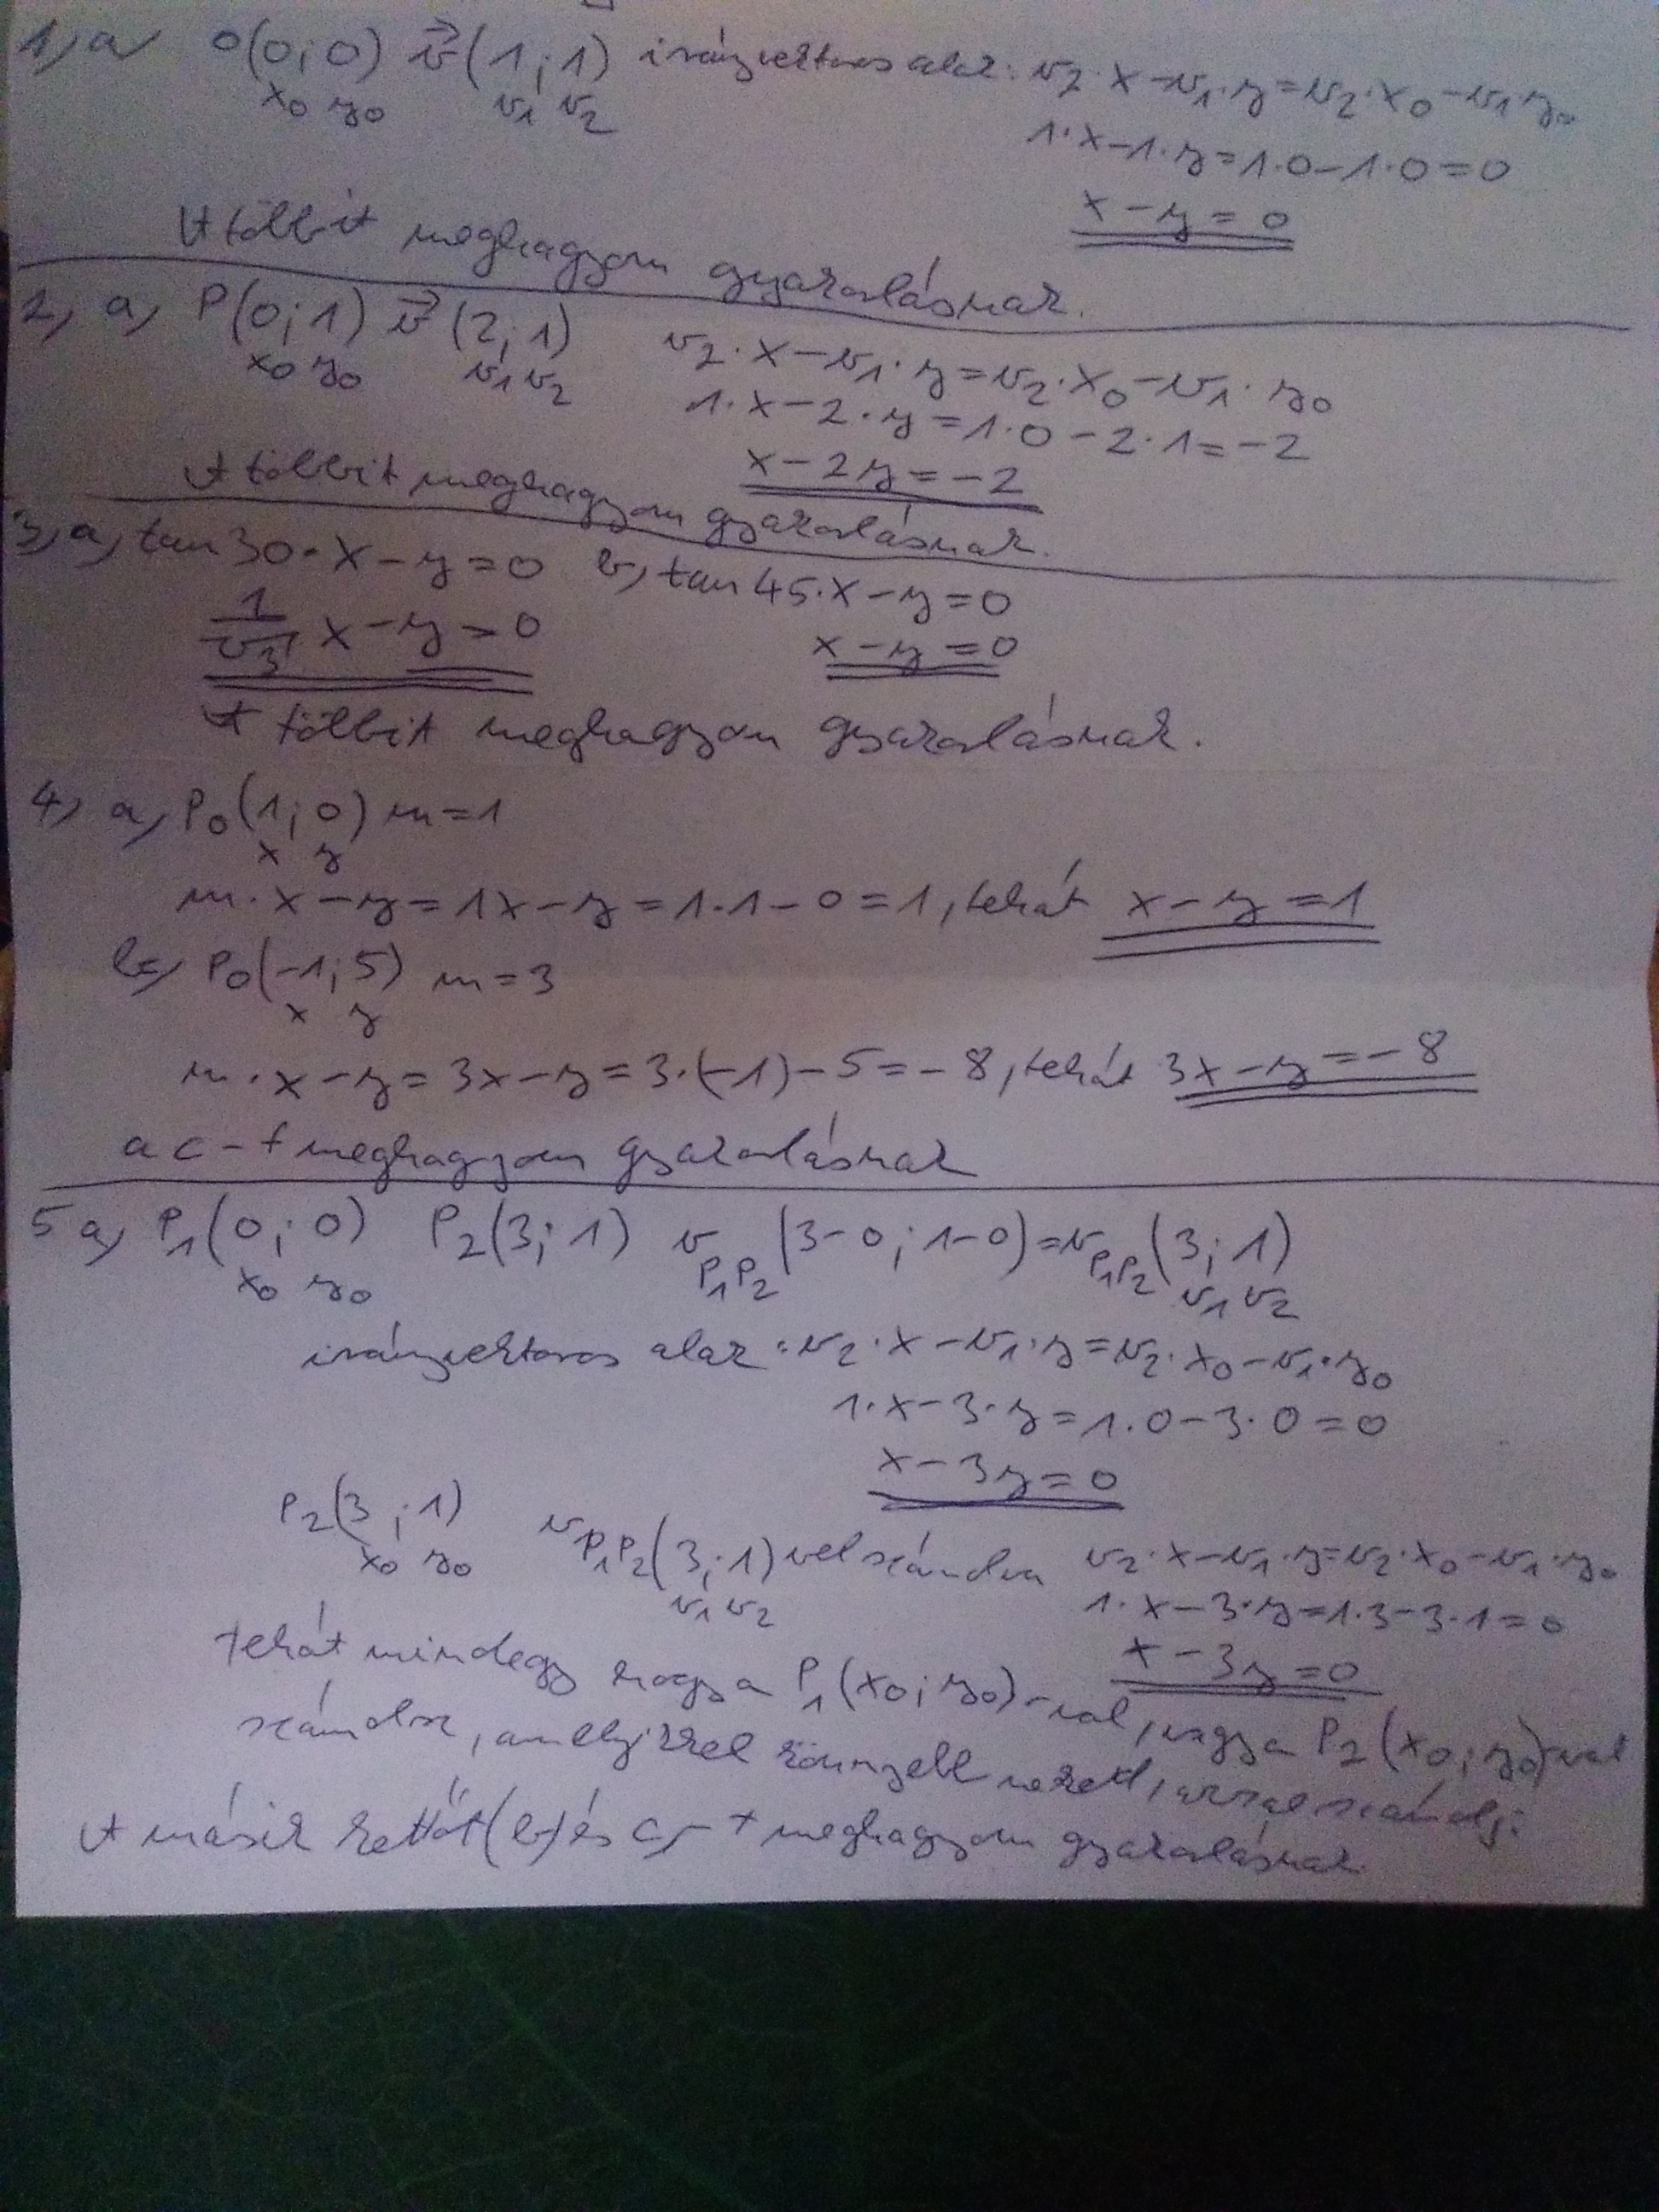 1, a, O(0;0) v⃗(1;1) irányvektoros alak: v₂·x-v₁·y=v₂·x₀-v₁·y₀
x₀ y₀ v₁ v₂
1·x-1·y=1·0-1·0=0
x-y=0
A többit meghagyom gyakorlásnak.
2, a, P(0;1) v⃗(2;1) v₂·x-v₁·y=v₂·x₀-v₁·y₀
x₀ y₀ v₁ v₂
1·x-2·y=1·0-2·1=-2
x-2y=-2
A többit meghagyom gyakorlásnak.
3, a, tan30·x-y=0 b, tan45·x-y=0
1/√3 x-y=0 x-y=0
A többit meghagyom gyakorlásnak.
4, a, P₀(1;0) m=1
x y
m·x-y=1x-y=1·1-0=1, tehát x-y=1
b, P₀(-1;5) m=3
x y
m·x-y=3x-y=3·(-1)-5=-8, tehát 3x-y=-8
a c-t meghagyom gyakorlásnak
5 a, P₁(0;0) P₂(3;1) v P₁P₂ (3-0;1-0)=v P₁P₂ (3;1)
x₀ y₀ v₁ v₂
irányvektoros alak: v₂·x-v₁·y=v₂·x₀-v₁·y₀
1·x-3·y=1·0-3·0=0
x-3y=0
P₂(3;1) v P₁P₂ (3;1) vel számolva v₂·x-v₁·y=v₂·x₀-v₁·y₀
x₀ y₀ v₁ v₂
1·x-3·y=1·3-3·1=0
x-3y=0
tehát mindegy hogy a P₁(x₀;y₀)-val, vagy a P₂(x₀;y₀)-val
számolsz, amelyikkel könnyebb neked, azzal számolj.
A másik kettőt (b, és c,-t meghagyom gyakorlásnak.